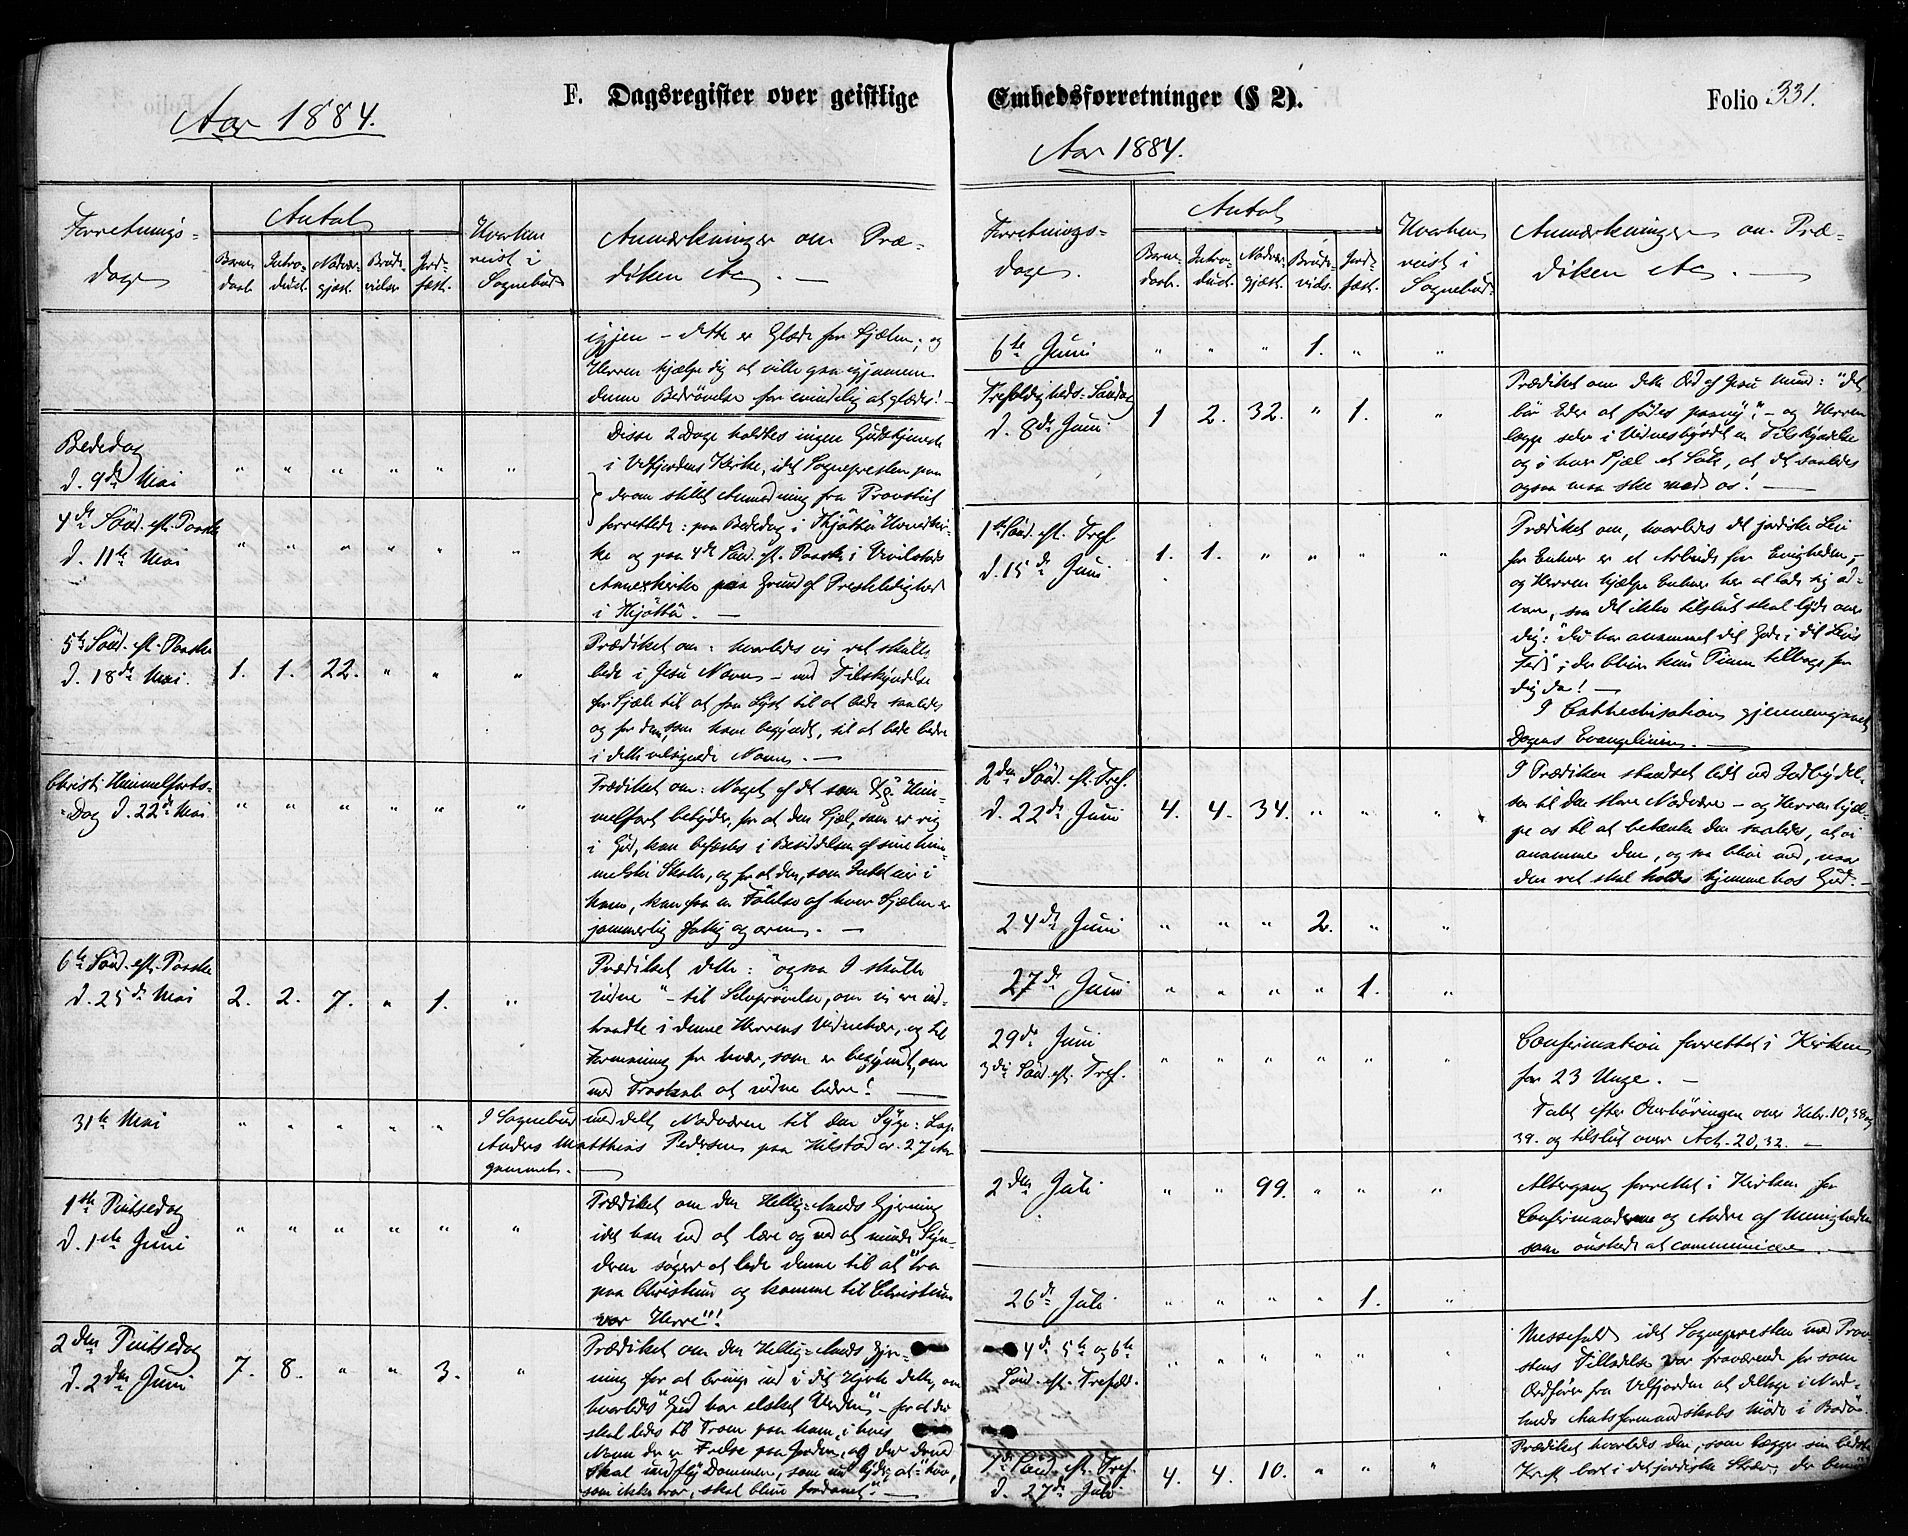 F. Dagsregister over geistlige
Aar 1884.
Forretnings-
dage
Antal
Barne-
daab.
Intro-
duct.
Nadver-
gjæst.
Brude-
vielser
Jord-
fæst.
Hvorhen
reist i
Sognebud
Anmærkninger om Præ-
diken &c.
igjen – dette er Glæde for Sjælen; og
Herren hjælpe dig at ville gaa igjennem
denne Bedrøvelse for evindelig at glædes!
Bededag
d. 9de Mai " " " " " "
4de Sönd. eft. Paaske
d. 11te Mai " " " " " "
Disse 2 Dage holdtes ingen Gudstjeneste
i Velfjordens Kirke, idet Sognepresten paa
derom skillet Anmodning fra Provstiet
forrettede: paa Bededag i Thjöttö Hovedkir-
ke og paa 4de Sönd. eft. Paaske i Vivilstads
Annexkirke paa Grund af Prestledighed
i Thjöttö. —
5te Sönd. eft. Paaske
d. 18de Mai. 1. 1. 22. " " "
Prædiket om: hvorledes vi ret skulle
bede i Jesu Navn – med Tilskyndelse
for Sjæle til at faa Lyst til at bede saaledes
og for dem, som have begyndt, til at bede bedre
i dette velsignede Navn. —
Christi Himmelfarts-
Dag d. 22de Mai " " " " " "
Prædiket om: Noget af det som Xsti Him-
melfart betyder, for at den Sjæl, som er rig
i Gud, kan befæstes i Besiddelsen af sine him-
melske Skatte, og for at den, som Intet eier i
ham, kan faa en Følelse af hvor Sjælen er
jammerlig fattig og arm. —
6te Sönd. eft. Paaske
d. 25de Mai 2. 2. 7. " 1. "
Prædiket dette: "ogsaa I skulle
vidne" – til Selvprøvelse, om vi ere ind-
traadte i denne Herrens Vidnehær, og til
Formaning for hver, som er begyndt, om
med Troskab at vidne bedre! —
31te Mai " " " " "
I Sognebud meddelt Nadveren til den Syge: Lap
Anders Matthias Pedersen paa Hilstad cr. 27 Aar
gammel. —
1ste Pintsedag
d. 1ste Juni " " " " " "
Prædiket om den Hellig-Aands Gjerning
idet han ved at lære og ved at minde Syn-
deren søger at lede denne til at "tro
paa Christum og komme til Christum
vor Herre"!
2den Pintsedag
d. 2den Juni 7. 8. " " 3. "
Prædiket om den Hellig-Aands Gjer-
ning for at bringe ind i dit Hjerte dette, om
hvorledes "Gud har elsket Verden" – for at det
skal ledes til Troen paa ham, i hvis
Navn der er Frelse paa Jorden, og der derved
skal undfly Dommen, som vil lyde at: "hvo,
som ikke tror, skal blive fordømt". —
Embedsforretninger (§ 2).
Folio 331.
Aar 1884.
Forretnings-
dage.
Antal
Barne-
daab.
Intro-
duct.
Nadver-
gjæst.
Brude-
vids.
Jord-
fæst.
Hvorhen
reist i
Sognebud.
Anmærkninger om Præ-
diken &c. —
6te Juni " " " 1. " "
Trefoldigheds-Söndag
d. 8de Juni 1 2. 32. " 1. "
Prædiket om dette Ord af Jesu Mund: "det
bör Eder at fødes paany"; – og Herren
lægge selv i Vidnesbyrdet en Tilskyndelse
og i hver Sjæl et Suk, at det saaledes
ogsaa maa ske med os! —
1ste Sönd. eft. Tref.
d. 15de Juni 1. 1. " " " "
Prædiket om, hvorledes det jordiske Liv
for Enhver er et Arbeide for Evigheden, –
og Herren hjælpe Enhver her at lade sig ad-
vare, saa det ikke tilslut skal lyde over
dig: "du har annammet dit Gode i dit Livs
Tid"; der bliver kun Pinen tilbage for
dig da! —
I Cathechisation gjennemgaaet
Dagens Evangelium. —
2den Sönd. eft. Tref.
d. 22de Juni 4. 4. 34. " " "
I Prædiken skredset ledt ved Indbydel-
sen til den store Nadvere – og Herren hjæl-
pe os til at betænke den saaledes, at vi
annamme den, og saa blive med, naar
den ret skal holdes hjemme hos Gud. –
24de Juni " " " 2. " "
27de Juni " " " " 1. "
29de Juni
3die Sönd. eft. Tref. " " " " " "
Confirmation forrettet i Kirken
for 23 Unge. –
Talt efter Overhøringen over Hebr. 10, 38 og
39. og tilslut over Act. 20, 32. –
2den Juli " " 99. " " "
Altergang forrettet i Kirken for
Confirmanderne og Andre af Menigheden
som ønskede at communicere. —
26de Juli " " " " 1. "
4de 5te og 6te
Sönd. eft. Trefold. " " " " " "
Messefald idet Sognepresten med Prov-
stens Tilladelse var fraværende for som
Ordfører fra Velfjorden at deltage i Nord-
lands Amtsformandskabs Møde i Bodö.
7de Sönd. eft. Tref.
d. 27de Juli 4. 4. 10. " " "
Prædiket hvorledes den, som lægger sin bedste
Kraft bort i det jordiske Stræv, der